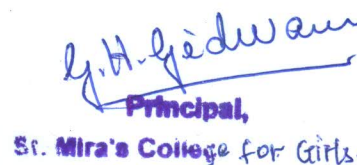 G.H. Gidwani
Principal,
St. Mira's College for Girls